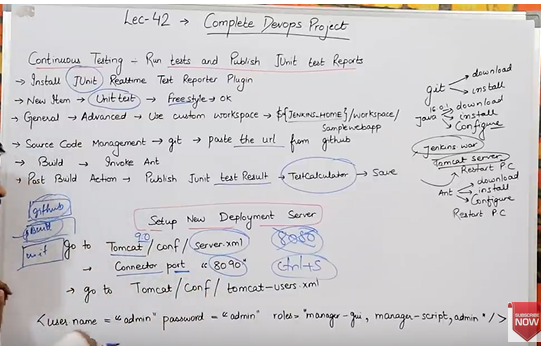 Lec-42 → Complete Devops Project
Continuous Testing - Run tests and Publish JUnit test Reports
→ Install JUnit Realtime Test Reporter Plugin
→ New Item → Unit test → Freestyle → OK
→ General → Advanced → Use custom workspace → ${JENKINS_HOME}/workspace/
Samplewebapp
→ Source Code Management → git → paste the url from github
→ Build → Invoke Ant
→ Post Build Action → Publish Junit test Result → TestCalculator → Save
git → download
→ install
Java → download
→ install
→ Configure
Jenkins war
Tomcat server
Restart PC
Ant → download
→ install
→ Configure
Restart PC
github
Build
unit
Setup New Deployment Server
go to Tomcat/conf/server.xml 8080
9.0
→ Connector port "8090" Ctrl+S
→ go to Tomcat/Conf/tomcat-users.xml
<user name = "admin" password = "admin" roles="manager-gui, manager-script, admin"/>
SUBSCRIBE
NOW